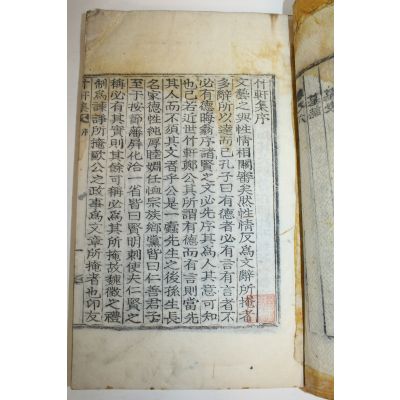 竹軒集序
文藝之與性情相關審矣然性情反為文辭所掩者
多辭所以達而已孔子曰有德者必有言有言者不
必有德晦翁序諸賢之文必先序其為人其意可知
也已若近世竹軒鄭公其所謂有德而有言則當先
其人而不須其文者乎公是一蠹先生之後孫生長
名家德性純厚睦婣任恤宗族鄉黨皆曰仁善君子
至于按節藩屏化洽一省皆曰賢明刺使夫仁賢之
稱必有其實則其餘可稱必為其所掩故魏徵之禮
制為諫諍所掩歐公之政事為文章所掩者也卬友
竹軒集 序 一